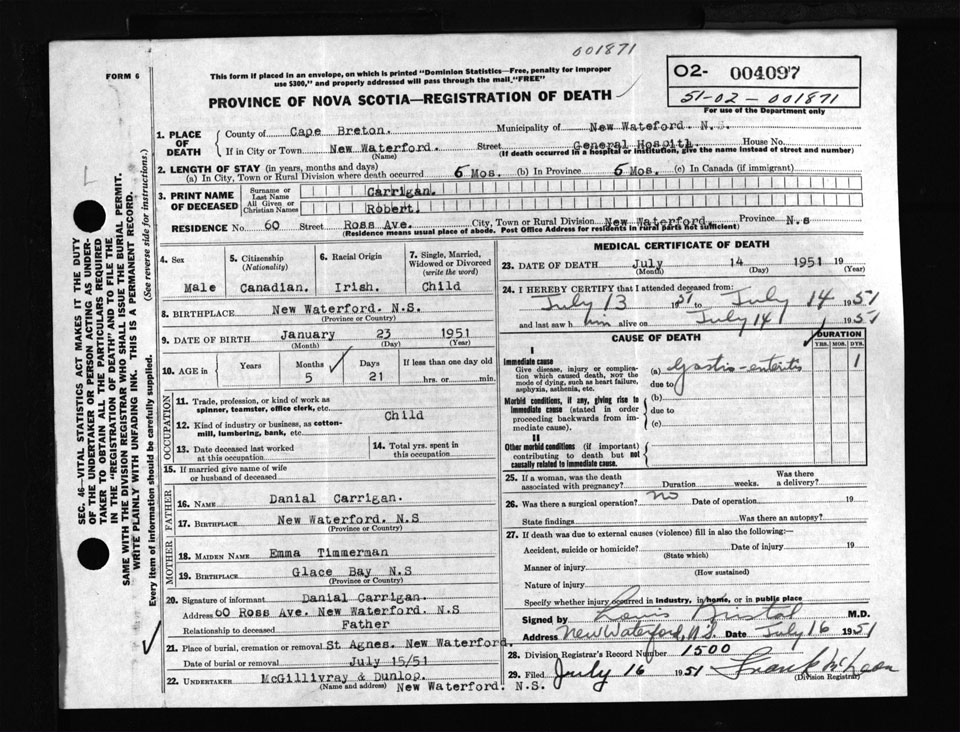 001871
FORM 6
This form if placed in an envelope, on which is printed "Dominion Statistics—Free, penalty for improper
use $300," and properly addressed will pass through the mail "FREE"
O2- 004097
51-02-001871
For use of the Department only
PROVINCE OF NOVA SCOTIA—REGISTRATION OF DEATH
1. PLACE OF DEATH
County of Cape Breton. Municipality of New Wateford. N.S.
If in City or Town New Waterford. Street General Hospitl. House No.
(Name) (If death occurred in a hospital or institution, give the name instead of street and number)
2. LENGTH OF STAY (in years, months and days)
(a) In City, Town or Rural Division where death occurred 6 Mos. (b) In Province 6 Mos. (c) In Canada (if immigrant)
3. PRINT NAME OF DECEASED
Surname or Last Name Carrigan.
All Given or Christian Names Robert.
RESIDENCE No. 60 Street Ross Ave. City, Town or Rural Division New Waterford. Province N.s
(Residence means usual place of abode. Post Office Address for residents in rural parts not sufficient)
4. Sex
Male
5. Citizenship
(Nationality)
Canadian.
6. Racial Origin
Irish.
7. Single, Married,
Widowed or Divorced
(write the word)
Child
8. BIRTHPLACE New Waterford. N.S.
(Province or Country)
9. DATE OF BIRTH January 23 1951
(Month) (Day) (Year)
10. AGE in
Years Months Days If less than one day old
5 21 hrs. or min.
OCCUPATION
11. Trade, profession, or kind of work as
spinner, teamster, office clerk, etc.
12. Kind of industry or business, as cotton-
mill, lumbering, bank, etc. Child
13. Date deceased last worked
at this occupation
14. Total yrs. spent in
this occupation
15. If married give name of wife
or husband of deceased
FATHER
16. NAME Danial Carrigan.
17. BIRTHPLACE New Waterford. N.S
(Province or Country)
MOTHER
18. MAIDEN NAME Emma Timmerman
19. BIRTHPLACE Glace Bay N.S
(Province or Country)
20. Signature of informant Danial Carrigan.
Address 60 Ross Ave. New Waterford. N.S
Relationship to deceased Father
21. Place of burial, cremation or removal St Agnes. New Waterford.
Date of burial or removal July 15/51
22. UNDERTAKER McGillivray & Dunlop.
New Waterford. N.S.
MEDICAL CERTIFICATE OF DEATH
23. DATE OF DEATH July 14 1951 19
(Month) (Day) (Year)
24. I HEREBY CERTIFY that I attended deceased from:
July 13 1951 to July 14 1951
and last saw him alive on July 14 1951
CAUSE OF DEATH
DURATION
YRS. MOS. DYS.
I
Immediate cause
Give disease, injury or complica-
tion which caused death, NOT the
mode of dying, such as heart failure,
asphyxia, asthenia, etc.
(a) Gastro-enteritis 1
due to
Morbid conditions, if any, giving rise to
immediate cause (stated in order
proceeding backwards from im-
mediate cause).
(b)
due to
(c)
II
Other morbid conditions (if important)
contributing to death but not
causally related to immediate cause.
25. If a woman, was the death
associated with pregnancy? Duration weeks. Was there
a delivery?
26. Was there a surgical operation? no Date of operation 19
State findings Was there an autopsy?
27. If death was due to external causes (violence) fill in also the following:—
Accident, suicide or homicide? Date of injury 19
(State which)
Manner of injury
(How sustained)
Nature of injury
Specify whether injury occurred in industry, in home, or in public place
Signed by Louis M.D.
Address New Waterford, N.S. Date July 16 1951
28. Division Registrar's Record Number 1500
29. Filed July 16 1951 Frank McLean
(Division Registrar)
SEC. 46—VITAL STATISTICS ACT MAKES IT THE DUTY
OF THE UNDERTAKER OR PERSON ACTING AS UNDER-
TAKER TO OBTAIN ALL THE PARTICULARS REQUIRED
IN THE "REGISTRATION OF DEATH" AND TO FILE THE
SAME WITH THE DIVISION REGISTRAR WHO SHALL ISSUE THE BURIAL PERMIT.
WRITE PLAINLY WITH UNFADING INK. THIS IS A PERMANENT RECORD.
Every item of information should be carefully supplied. (See reverse side for instructions.)